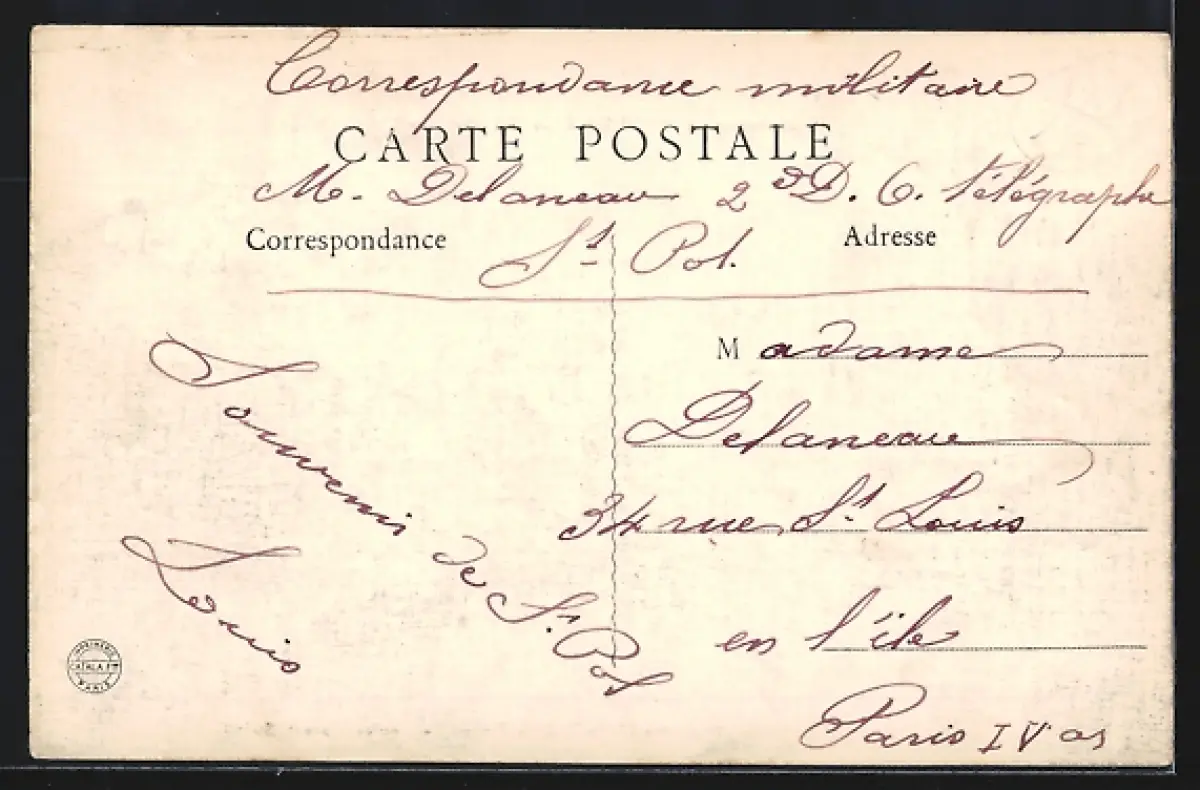 Correspondance militaire
CARTE POSTALE
M. Delaneau 2e D. C. télégraphe
St Pol.
Correspondance
Adresse
Souvenir de St. Pol
Louis
Madame
Delaneau
34 rue St. Louis
en l'île
Paris IV ar
IMPRIMERIE
CATALA Fres
PARIS